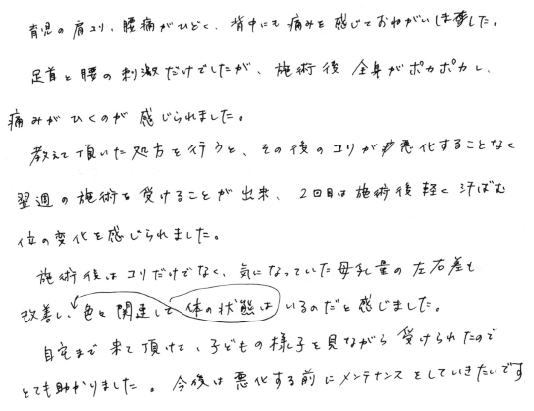 育児の肩コリ、腰痛がひどく、背中にも痛みを感じておねがいしました。
足首と腰の刺激だけでしたが、施術後 全身がポカポカし、
痛みがひくのが感じられました。
教えて頂いた処方を行うと、その後のコリが悪化することなく
翌週の施術を受けることが出来、2回目は施術後軽く汗ばむ
位の変化を感じられました。
施術後はコリだけでなく、気になっていた母乳量の左右差も
改善し、色々関連して体の状態はいるのだと感じました。
自宅まで来て頂けて、子どもの様子を見ながら受けられたので
とても助かりました。今後は悪化する前にメンテナンスをしていきたいです